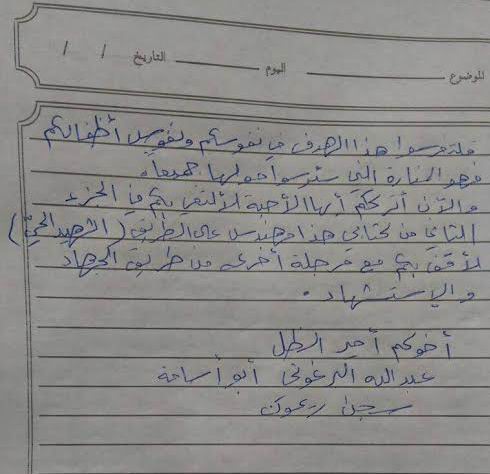 الموضوع اليوم التاريخ / /
فلتغرسوا هذا الهدف في نفوسكم ونفوس أطفالكم
فهو المنارة التي سترسوا حولها جميعاً.
والآن أترككم أيها الأحبة لألتقي بكم في الجزء
الثاني من كتابي هذا مهندس على الطريق (الشهيد الحيّ)
لأقف بكم مع مرحلة أخرى من طريق الجهاد
والاستشهاد.
أخوكم أمير الظل
عبدالله البرغوثي أبو أسامة
سجن ريمون